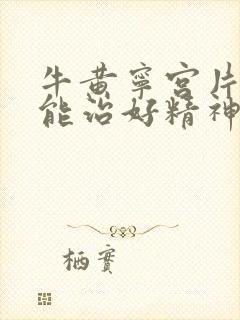 牛黄宁宫片
能治好精神
栖实